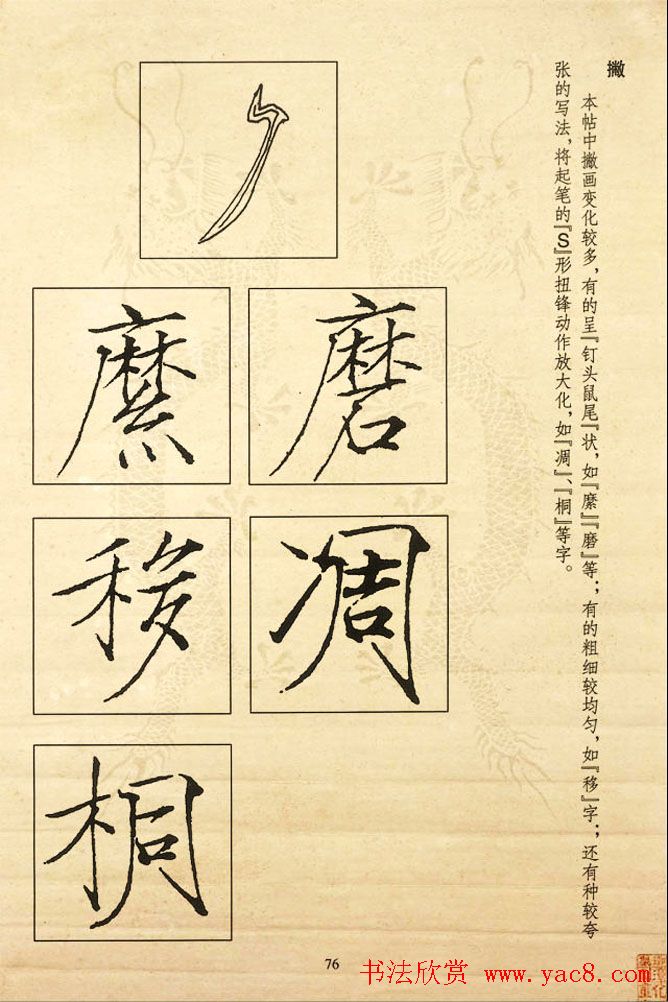 撇
本帖中撇画变化较多，有的呈『钉头鼠尾』状，如『縻』『磨』等；有的粗细较均匀，如『移』字；还有种较夸
张的写法，将起笔的『S』形扭锋动作放大化，如『凋』、『桐』等字。
磨 縻
凋 移
桐
76
书法欣赏 www.yac8.com